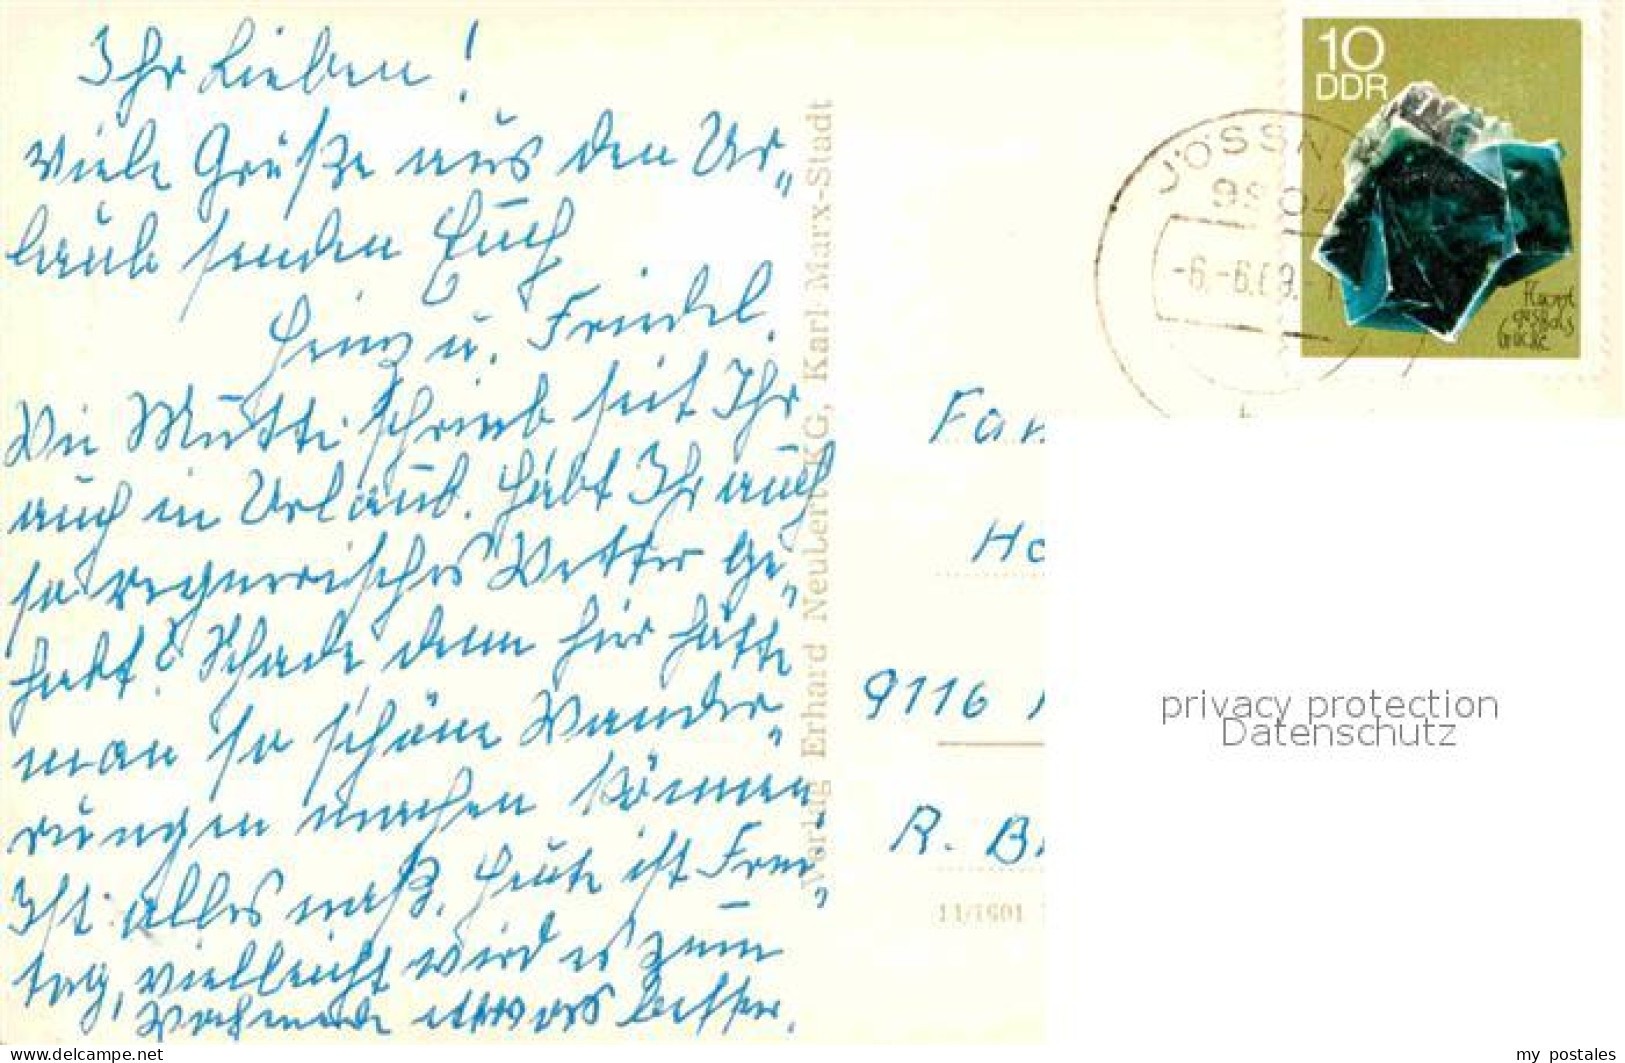 Ihr Lieben!
Viele Grüße aus den Ur„
laub senden Euch
Heinz u. Friedel.
Wie Mutti schrieb seit Ihr
auch in Urlaub. Habt Ihr auch
so regnerisches Wetter ge„
habt? Schade denn hier hätte
man so schöne Wander„
rungen machen können
Ist alles naß. Heute ist Frei„
tag, vielleicht wird es zum
Wochenende etwas besser.
Verlag Erhard Neubert KG, Karl-Marx-Stadt
10
DDR
JÖSSN
9904
-6.-6.69.-1
Fam
Ho
9116
R. B
privacy protection
Datenschutz
my_postales
www.delcampe.net